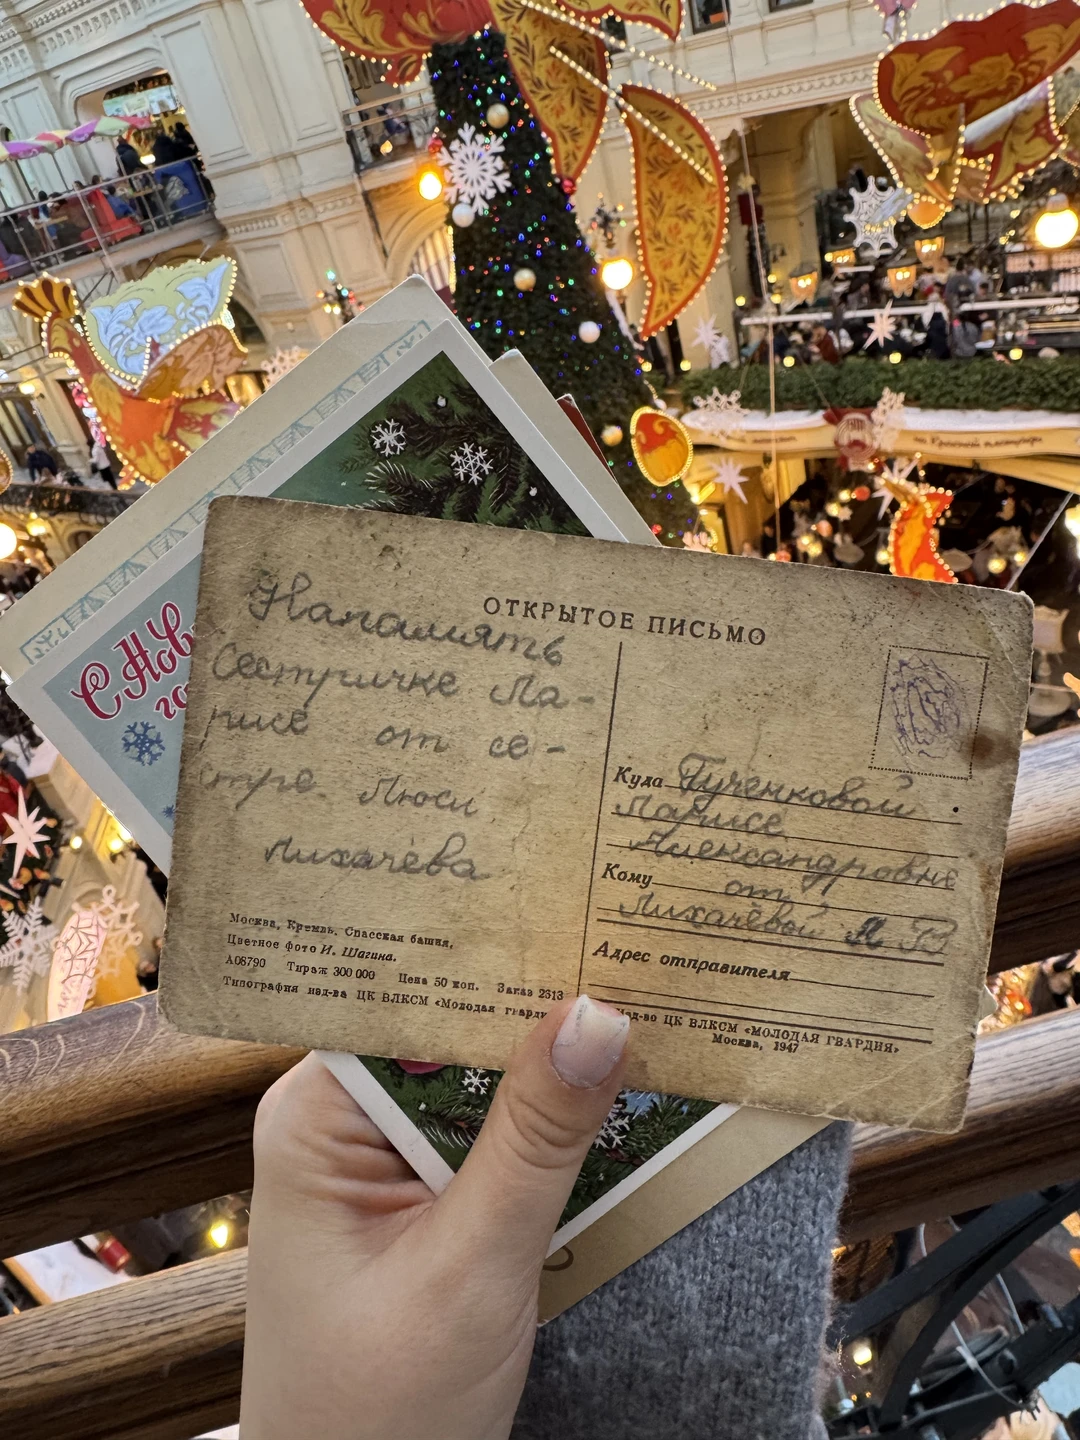 С Нов
го
ОТКРЫТОЕ ПИСЬМО
Напамять
Сестричке Ла-
рисе от се-
стре Люси
Лихачёва
Москва, Кремль, Спасская башня,
Цветное фото И. Шагина.
А08790 Тираж 300 000 Цена 50 коп. Заказ 2313
Типография изд-ва ЦК ВЛКСМ «Молодая гварди
Куда Гученковой
Ларисе
Александровне
Кому от
Лихачёвой Л В
Адрес отправителя
Изд-во ЦК ВЛКСМ «МОЛОДАЯ ГВАРДИЯ»
Москва, 1947